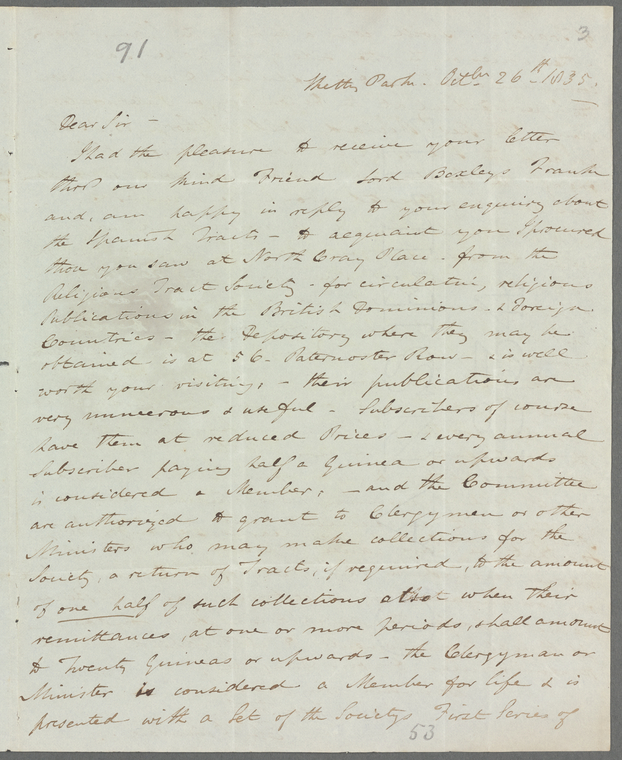 91
3
Sketty Park. Octbr 26th 1835.
Dear Sir -
I had the pleasure to receive your letter
thro' our kind Friend Lord Bexleys Frank
and, am happy in reply to your enquiry about
the Spanish Tracts - to acquaint you I procured
those you saw at North Cray Place. from the
Religious Tract Society - for circulating religious
Publications in the British Dominions - & Foreign
Countries - the Depository where they may be
obtained is at 56 - Paternoster Row - & is well
worth your visiting, - their publications are
very numerous & useful - Subscribers of course
have them at reduced Prices - & every annual
Subscriber paying half a Guinea or upwards
is considered a Member, - and the Committee
are authorized to grant to Clergymen or other
Ministers who may make collections for the
Society, a return of Tracts, if required, to the amount
of one half of such collections when their
remittances, at one or more periods, shall amount
to Twenty Guineas or upwards - the Clergyman or
Minister is considered a Member for life & is
presented with a Set of the Societys First Series of
53